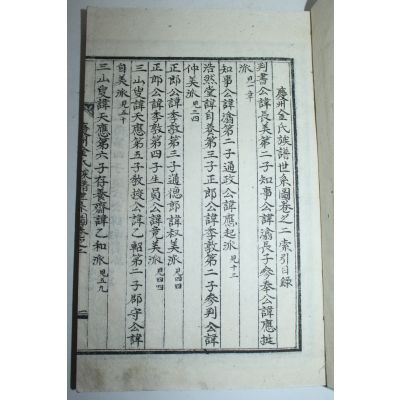 慶州金氏族譜世系圖卷之二 索引目錄
判書公諱長美第二子知事公諱渝長子參奉公諱應
派 見一
知事公諱渝第二子通政公諱應起派 見十三
浩然堂諱自養第三子正郎公諱季敦第二子參判公諱
仲美派 見二四
正郎公諱季敦第三子通德郎諱叔美派 見四四
正郎公諱季敦第四子生員公諱竟美派 見四四
三山叟諱天應第五子教授公諱乙軺第二子郡守公諱
自美派 見五十
三山叟諱天應第六子存養齋諱乙和派 見五九